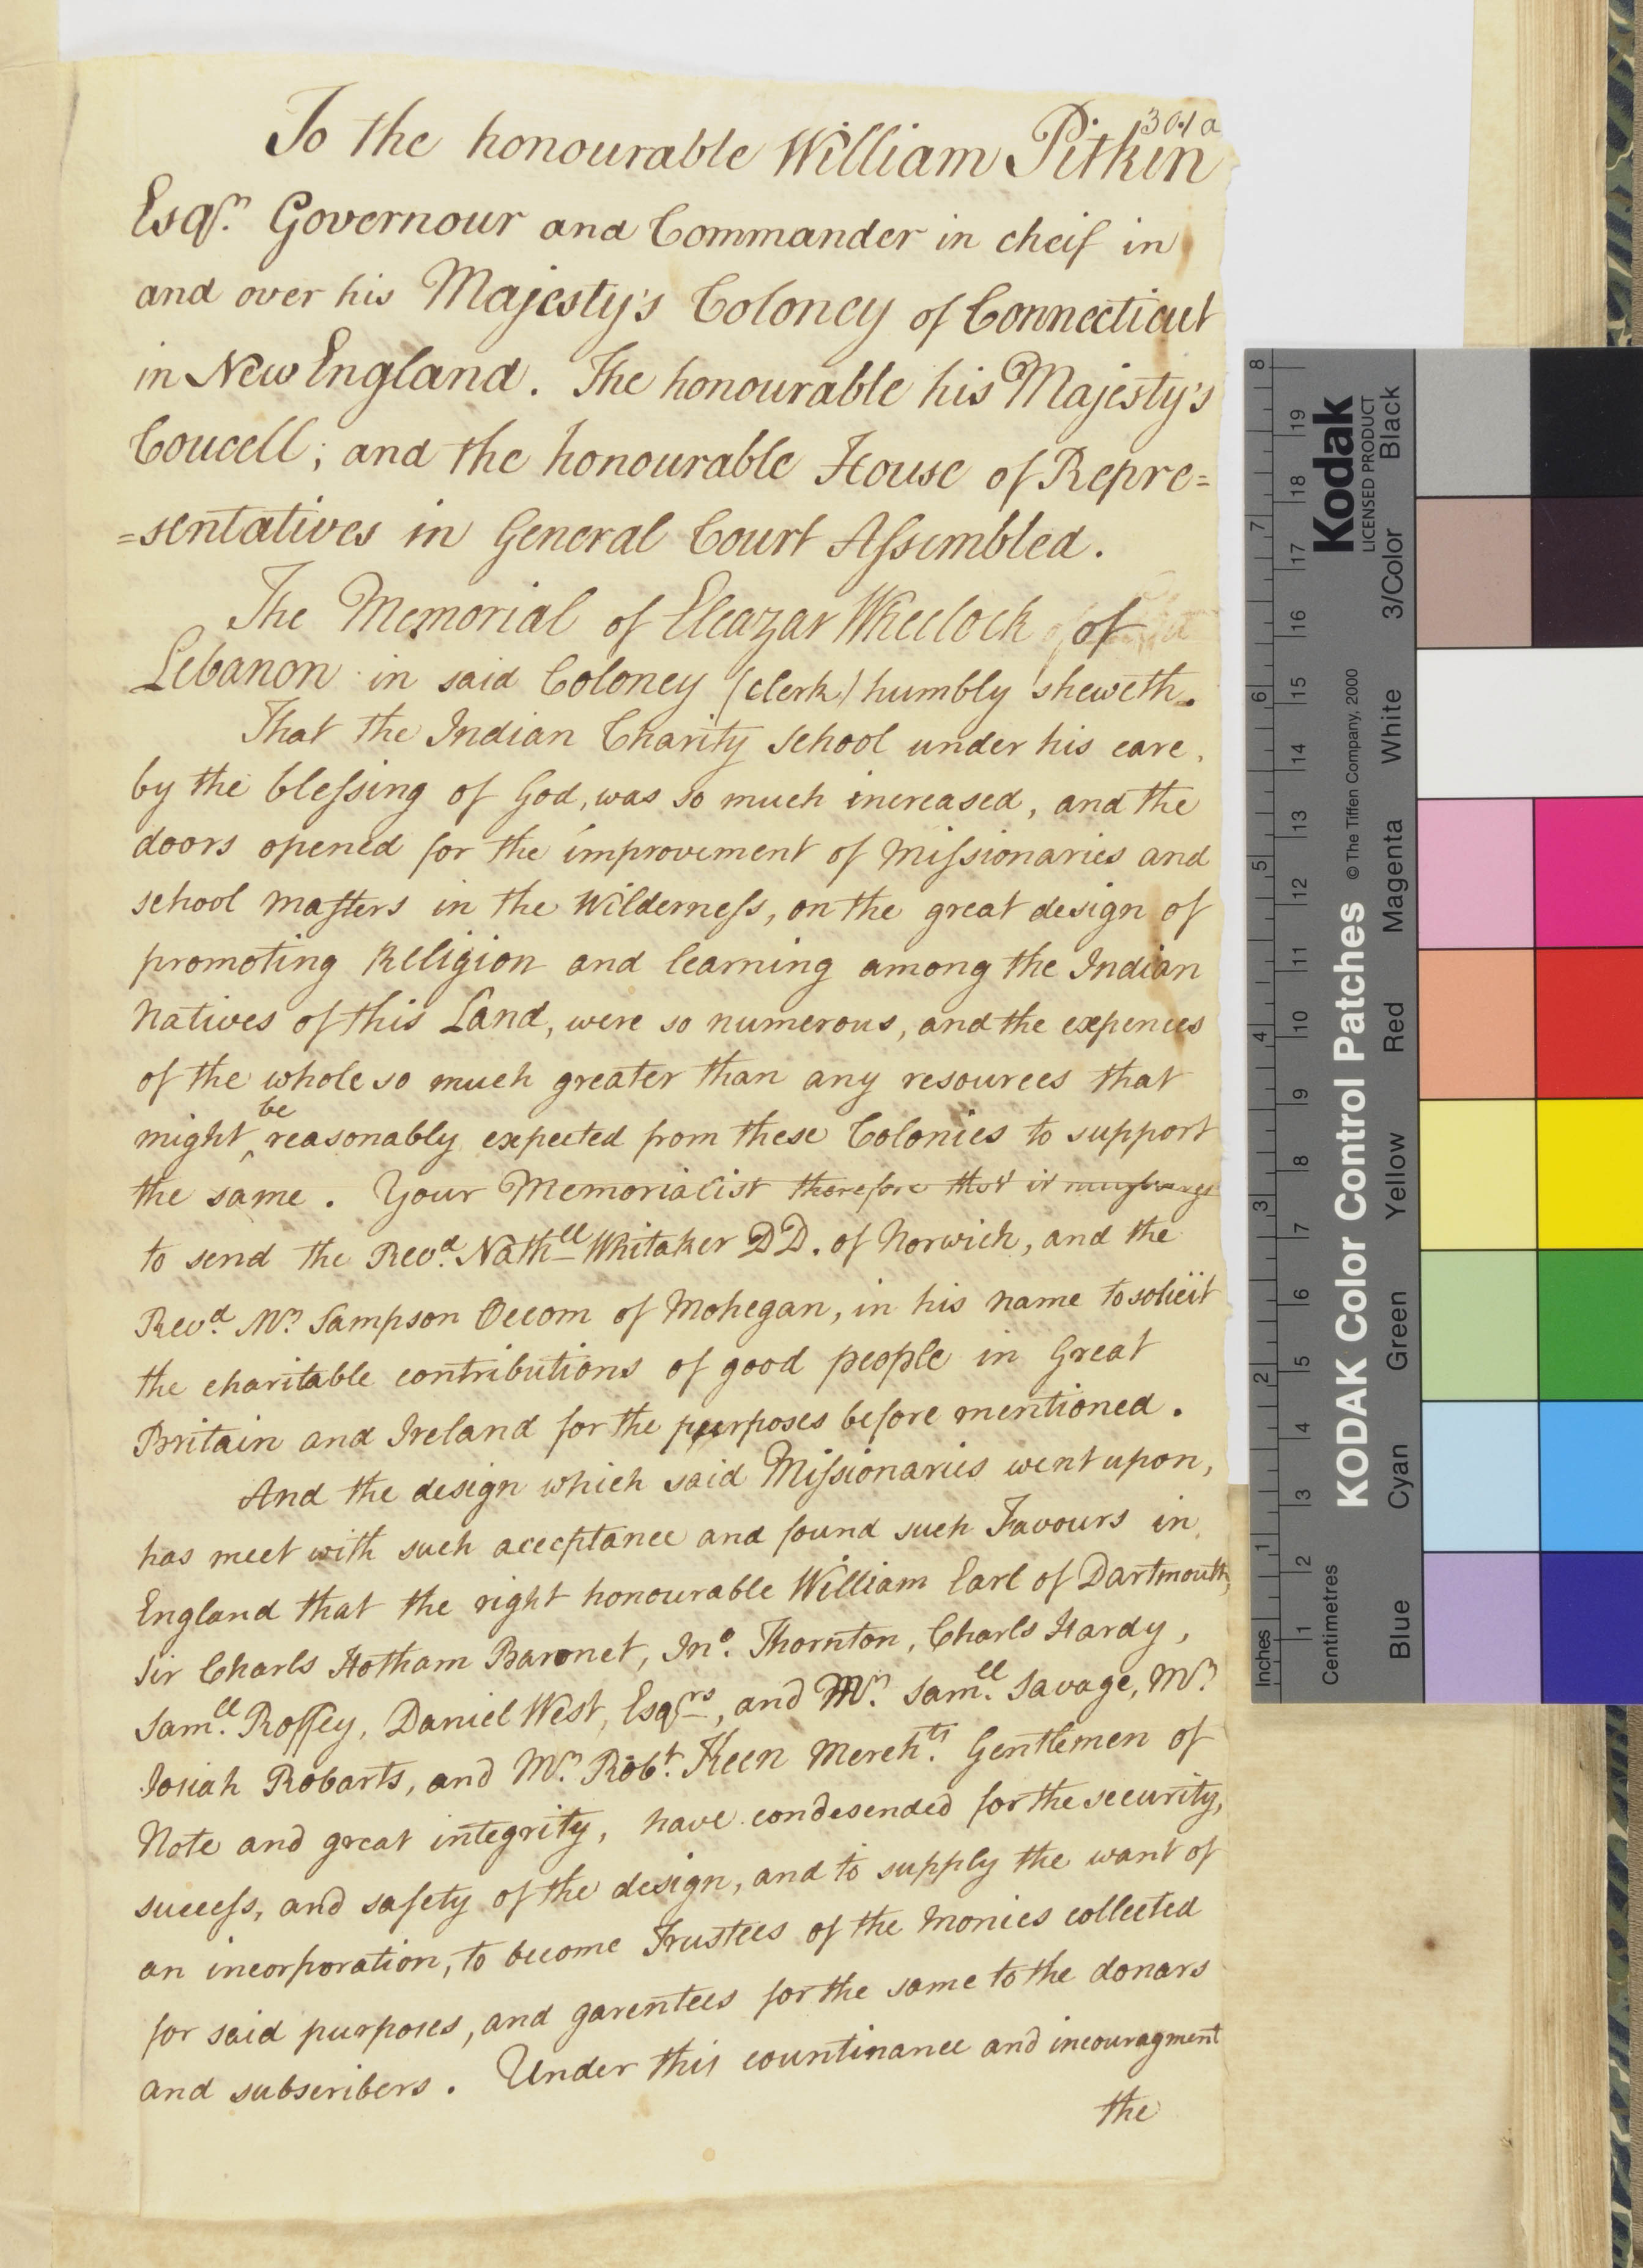 301a
To the honourable William Pitkin
Esqr. Governour and Commander in cheif in
and over his Majesty's Coloney of Connecticut
in New England. The honourable his Majesty's
Coucell; and the honourable House of Repre=
=sentatives in General Court Assembled.
The Memorial of Eleazar Wheelock of
Lebanon in said Coloney (clerk) humbly sheweth.
That the Indian Charity School under his care,
by the blessing of God, was so much increased, and the
doors opened for the improvement of Missionaries and
school masters in the Wilderness, on the great design of
promoting Religion and learning among the Indian
Natives of this Land, were so numerous, and the expences
of the whole so much greater than any resources that
might be reasonably expected from these Colonies to support
the same. Your Memorialist therefore that it
to send the Revd. Nathll Whitaker DD. of Norwich, and the
Revd. Mr. Sampson Occom of Mohegan, in his name to solicit
the charitable contributions of good people in Great
Britain and Ireland for the purposes before mentioned.
And the design which said Missionaries went upon,
has meet with such acceptance and found such Favours in
England that the right honourable William Earl of Dartmouth,
Sir Charls Hotham Baronet, Jno. Thornton, Charls Hardy,
Samll. Roffey, Daniel West, Esqrs, and Mr. Samll. Savage, Mr.
Josiah Robarts, and Mr. Robt. Keen Merchts. Gentlemen of
Note and great integrity, have condesended for the security,
success, and safety of the design, and to supply the want of
an incorporation, to become Trustees of the Monies collected
for said purposes, and garentees for the same to the donars
and subscribers. Under this countinance and incouragment
the
Kodak
LICENSED PRODUCT
KODAK Color Control Patches © The Tiffen Company, 2000
Blue Cyan Green Yellow Red Magenta White 3/Color Black
Inches 1 2 3 4 5 6 7 8
Centimetres 1 2 3 4 5 6 7 8 9 10 11 12 13 14 15 16 17 18 19